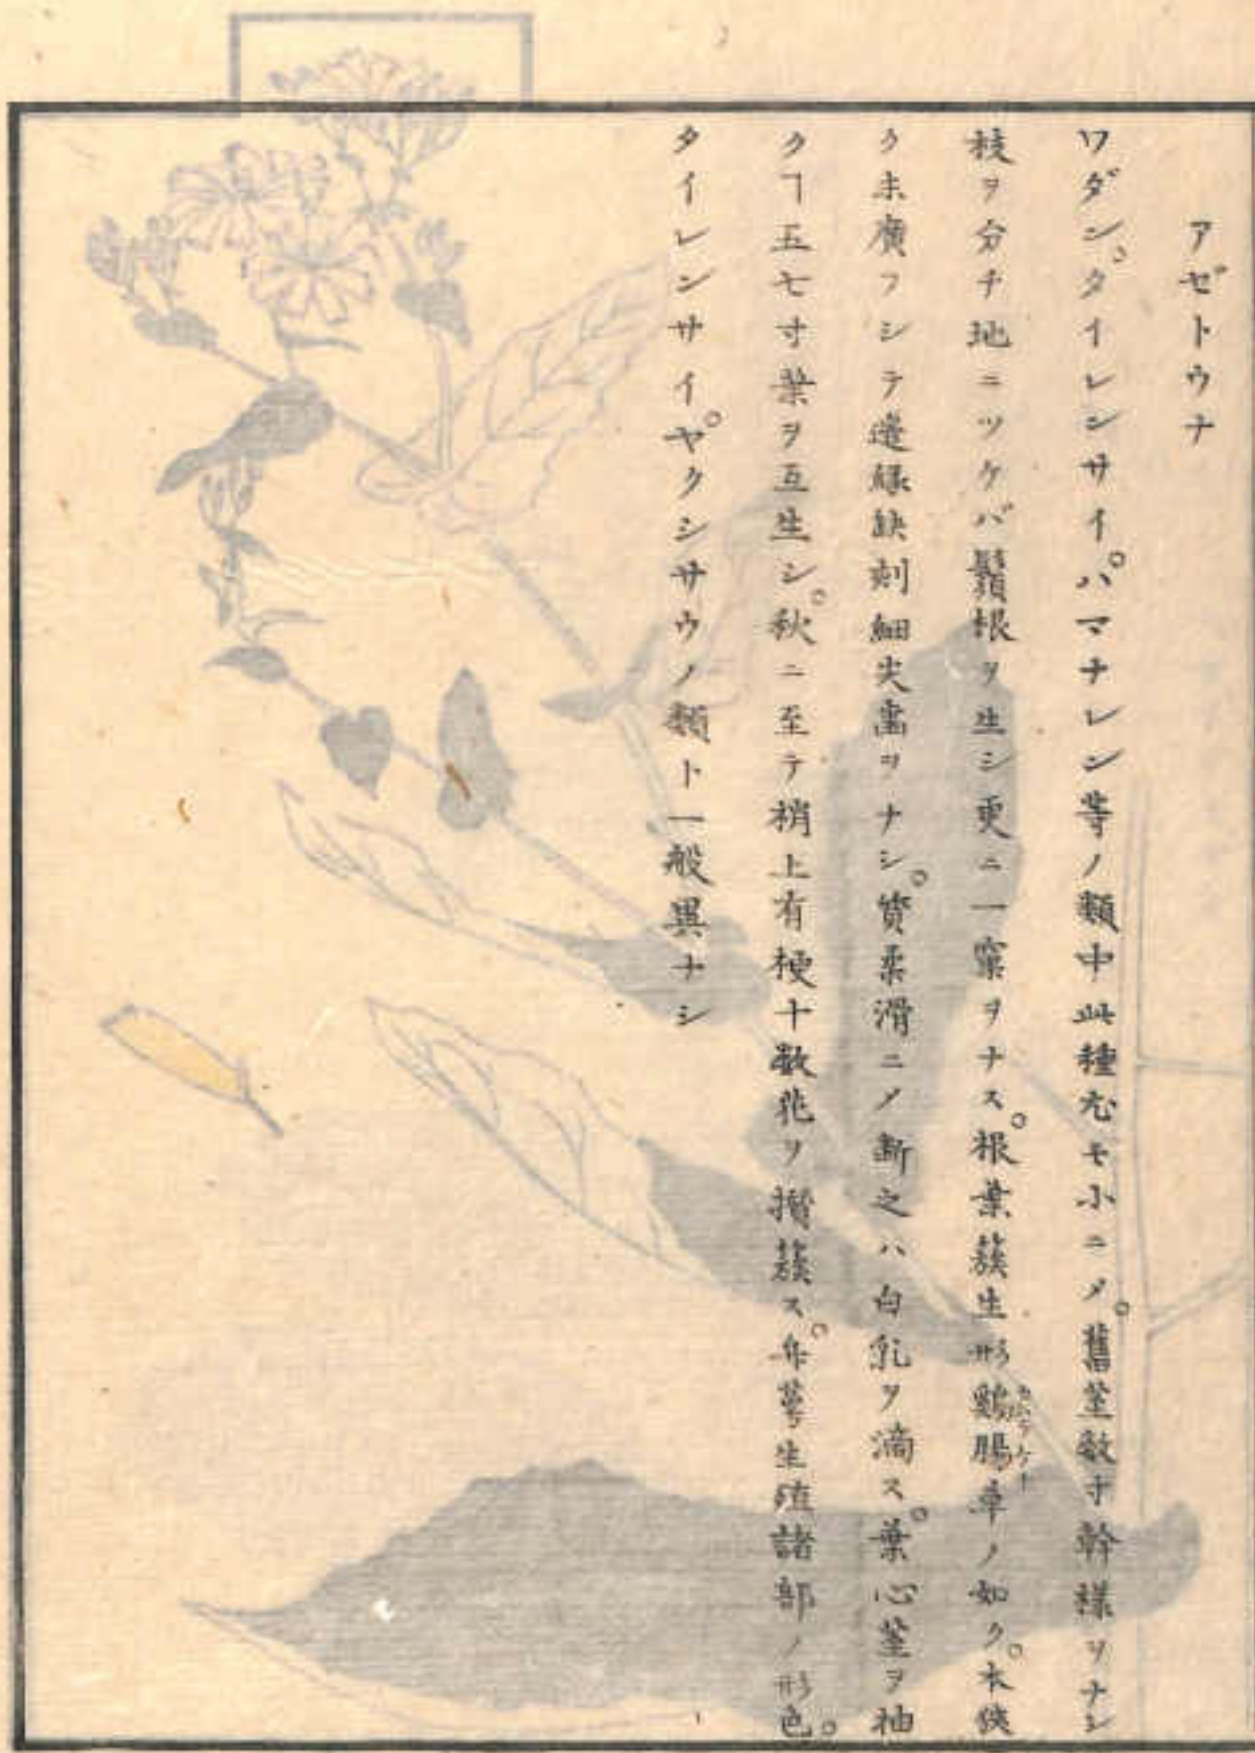 アゼトウナ
ワダン、タイレンサイ。ハマナレン等ノ類中此種尤モ小ニメ。舊莖数寸幹様ヲナシ
枝ヲ分チ地ニツケバ鬚根ヲ生シ更ニ一窠ヲナス。根葉蔟生形鷄腸草ノ如ク。本狹
ク末廣フシテ邊緣缺刻細尖齒ヲナシ。質柔滑ニメ斷之ハ白乳ヲ滴ス。葉心莖ヲ抽
クヿ五七寸葉ヲ互生シ。秋ニ至テ梢上有梗十数花ヲ攢蔟ス。弁萼生殖諸部ノ形色。
タイレンサイ。ヤクシサウノ類ト一般異ナシ